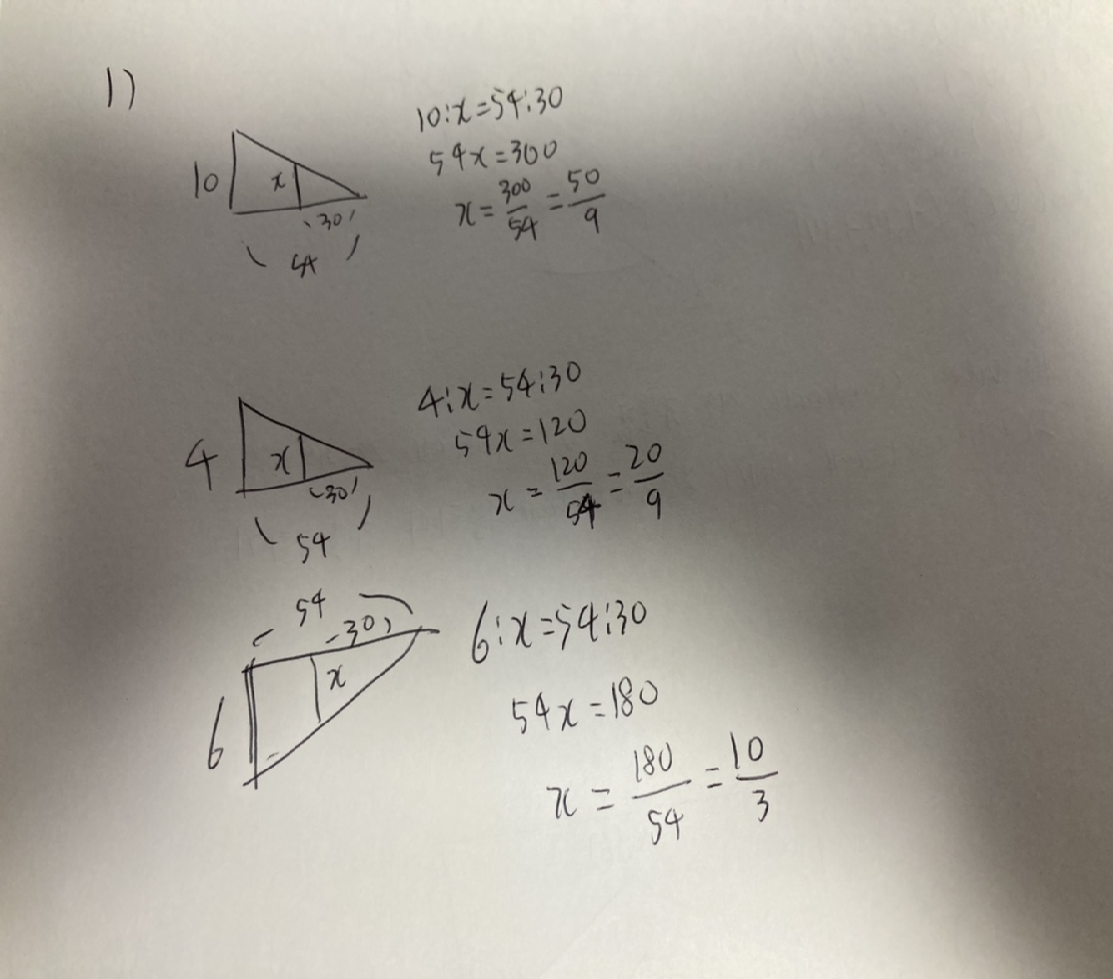 1)
10:x=54:30
54x=300
x=300/54=50/9
10
x
30
54
4:x=54:30
54x=120
x=120/54=20/9
4
x
30
54
54
30
x
6
6:x=54:30
54x=180
x=180/54=10/3